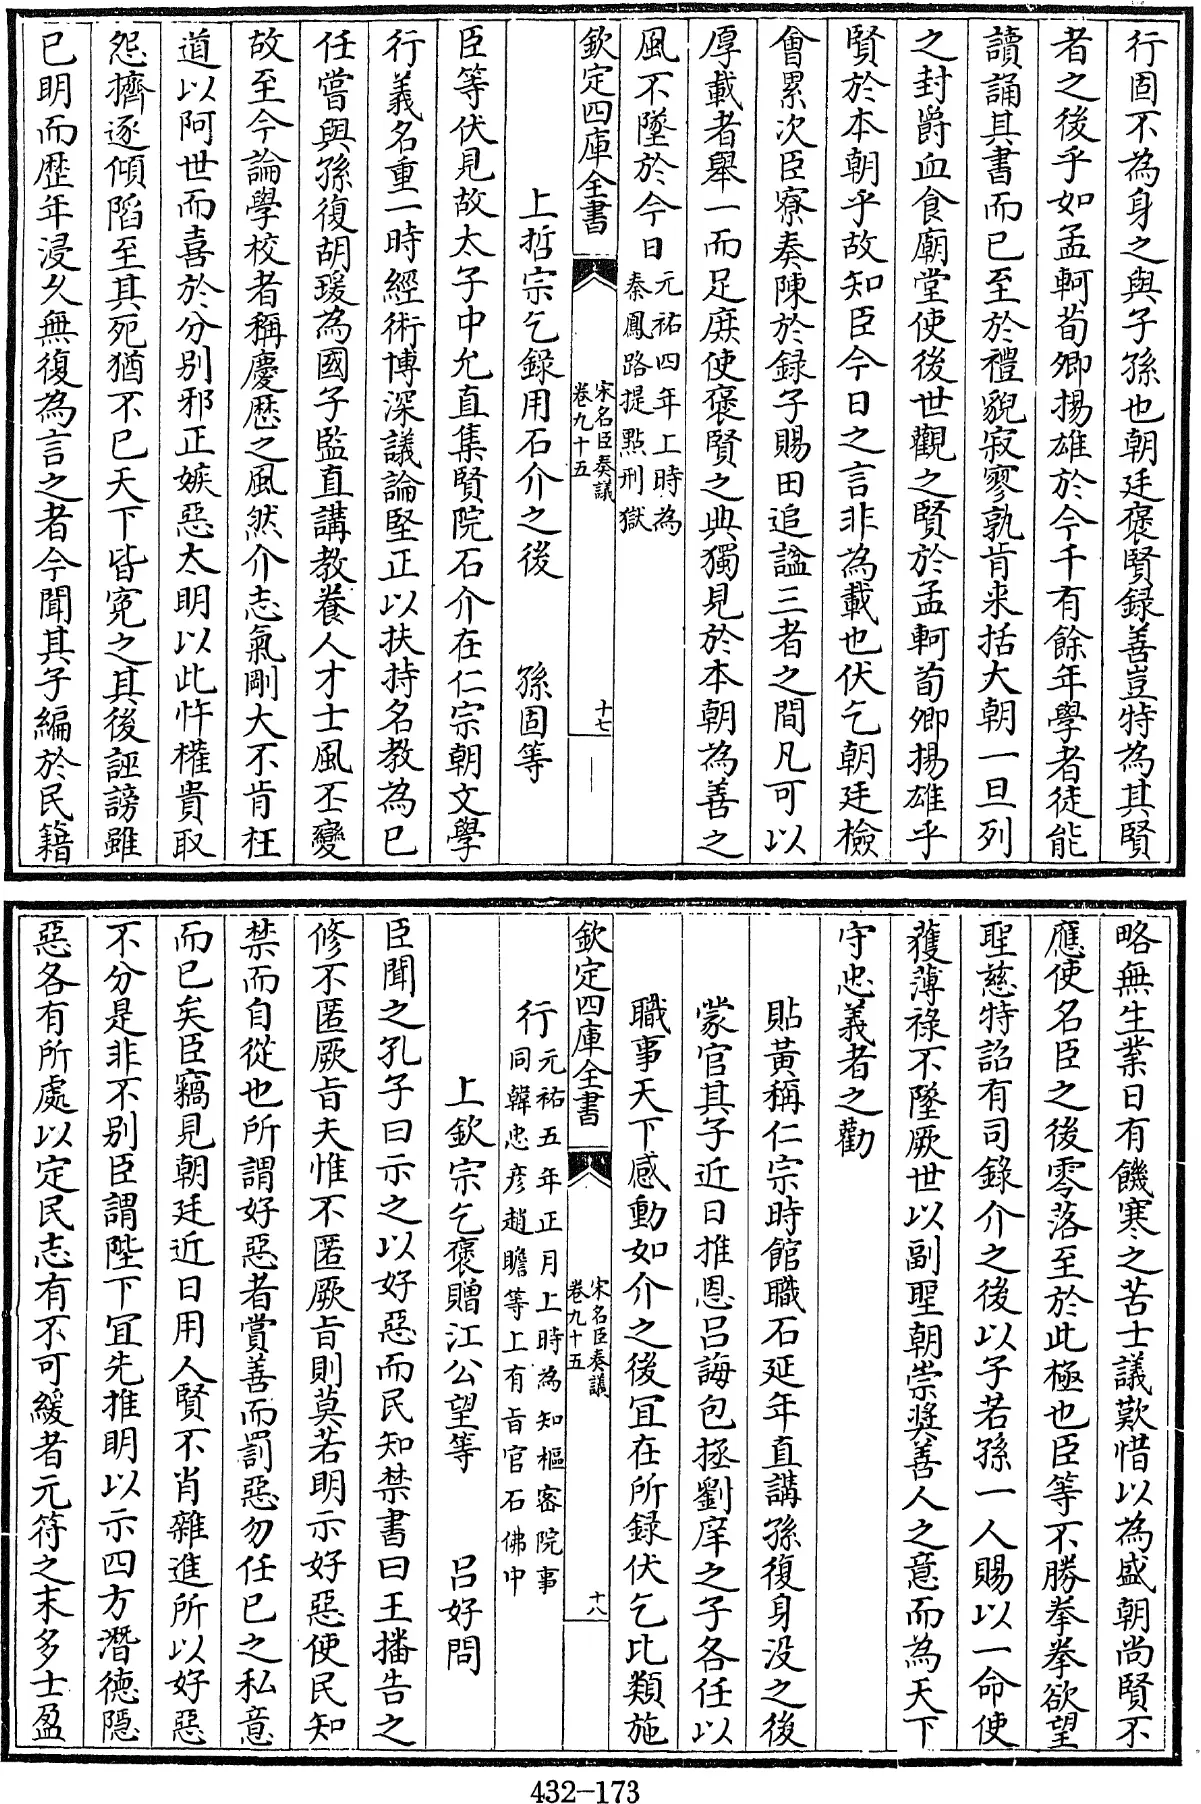 行固不為身之與子孫也朝廷褒賢録善豈特為其賢
者之後乎如孟軻荀卿揚雄於今千有餘年學者徒能
讀誦其書而已至於禮貌寂寥孰肯来括大朝一旦列
之封爵血食廟堂使後世觀之賢於孟軻荀卿揚雄乎
賢於本朝乎故知臣今日之言非為載也伏乞朝廷檢
會累次臣寮奏陳於録子賜田追諡三者之間凡可以
厚載者舉一而足庶使褒賢之典獨見於本朝為善之
風不墜於今日元祐四年上時為秦鳳路提點刑獄
欽定四庫全書
宋名臣奏議
卷九十五
十七
上哲宗乞録用石介之後 孫固等
臣等伏見故太子中允直集賢院石介在仁宗朝文學
行義名重一時經術博深議論堅正以扶持名教為已
任嘗與孫復胡瑗為國子監直講教養人才士風丕變
故至今論學校者稱慶歴之風然介志氣剛大不肯枉
道以阿世而喜於分别邪正嫉惡太明以此忤權貴取
怨擠逐傾陷至其死猶不已天下皆寃之其後誣謗雖
已明而歴年浸久無復為言之者今聞其子編於民籍
略無生業日有饑寒之苦士議歎惜以為盛朝尚賢不
應使名臣之後零落至於此極也臣等不勝拳拳欲望
聖慈特詔有司錄介之後以子若孫一人賜以一命使
獲薄祿不墜厥世以副聖朝崇奬善人之意而為天下
守忠義者之勸
貼黃稱仁宗時館職石延年直講孫復身没之後
蒙官其子近日推恩吕誨包拯劉庠之子各任以
職事天下感動如介之後宜在所録伏乞比類施
行元祐五年正月上時為知樞密院事同韓忠彦趙瞻等上有㫖官石佛中
欽定四庫全書
宋名臣奏議
卷九十五
十八
上欽宗乞褒贈江公望等 吕好問
臣聞之孔子曰示之以好惡而民知禁書曰王播告之
修不匿厥㫖夫惟不匿厥㫖則莫若明示好惡使民知
禁而自從也所謂好惡者賞善而罰惡勿任已之私意
而已矣臣竊見朝廷近日用人賢不肖雜進所以好惡
不分是非不别臣謂陛下宜先推明以示四方潛德隱
惡各有所處以定民志有不可緩者元符之末多士盈
432-173